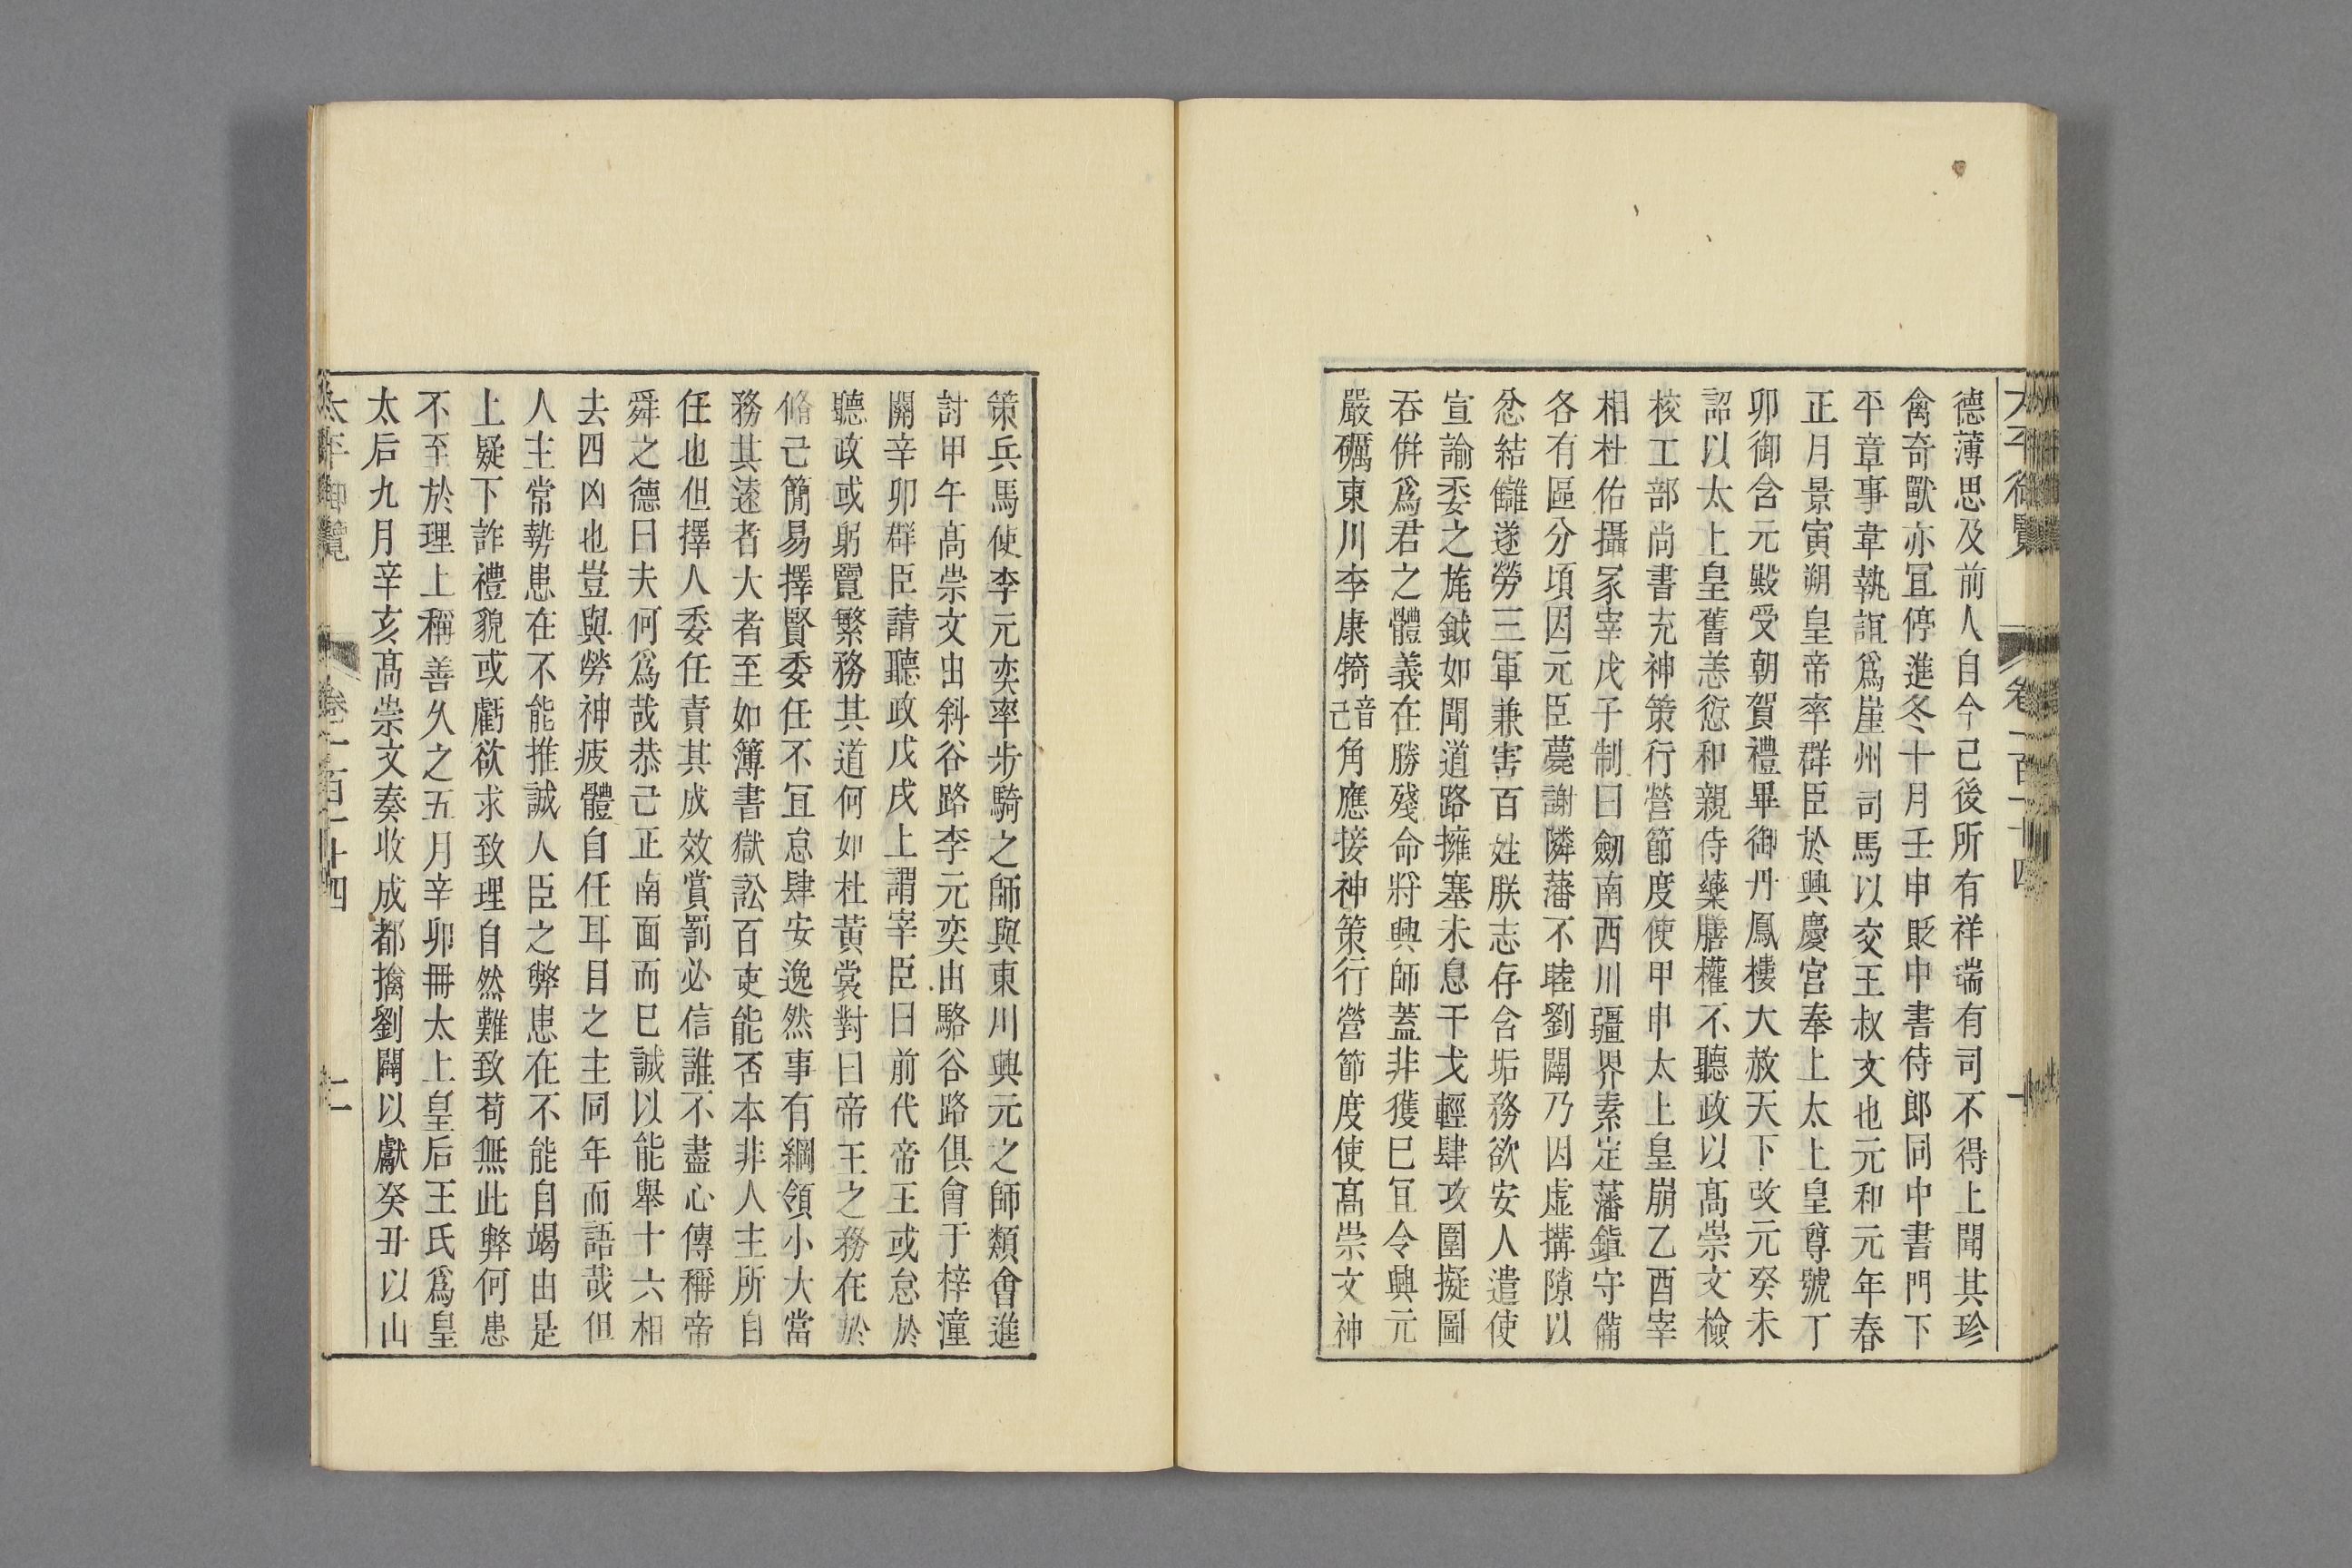 德薄思及前人自今已後所有祥端有司不得上聞其珍
禽奇獸亦冝停進冬十月壬申貶中書侍郎同中書門下
平章事韋執誼爲崖州司馬以交王叔文也元和元年春
正月景寅朔皇帝率群臣於興慶宮奉上太上皇尊號丁
卯御含元殿受朝賀禮畢御丹鳳樓大赦天下改元癸未
詔以太上皇舊恙愆和親侍藥膳權不聽政以髙崇文檢
校工部尚書充神策行營節度使甲申太上皇崩乙酉宰
相杜佑攝冢宰戊子制曰劒南西川疆界素定藩鎮守備
各有區分頃因元臣薨謝隣藩不睦劉闢乃因虛搆隙以
忿結讎遂勞三軍兼害百姓朕志存含垢務欲安人遣使
宣諭委之旄鉞如聞道路擁塞未息干戈輕肆攻圍擬圖
吞併爲君之體義在勝殘命將興師蓋非獲巳冝令興元
嚴礪東川李康犄音己角應接神策行營節度使髙崇文神
策兵馬使李元奕率步騎之師與東川興元之師類會進
討甲午髙崇文出斜谷路李元奕由駱谷路俱會于梓潼
關辛卯群臣請聽政戊戌上謂宰臣曰前代帝王或怠於
聽政或躬覽繁務其道何如杜黃裳對曰帝王之務在於
脩己簡易擇賢委任不冝怠肆安逸然事有綱領小大當
務其遠者大者至如簿書獄訟百吏能否本非人主所自
任也但擇人委任責其成效賞罰必信誰不盡心傳稱帝
舜之德曰夫何爲哉恭己正南面而巳誠以能舉十六相
去四凶也豈與勞神疲體自任耳目之主同年而語哉但
人主常勢患在不能推誠人臣之弊患在不能自竭由是
上疑下詐禮貌或虧欲求致理自然難致苟無此弊何患
不至於理上稱善久之五月辛卯冊太上皇后王氏爲皇
太后九月辛亥髙崇文奏收成都擒劉闢以獻癸丑以山